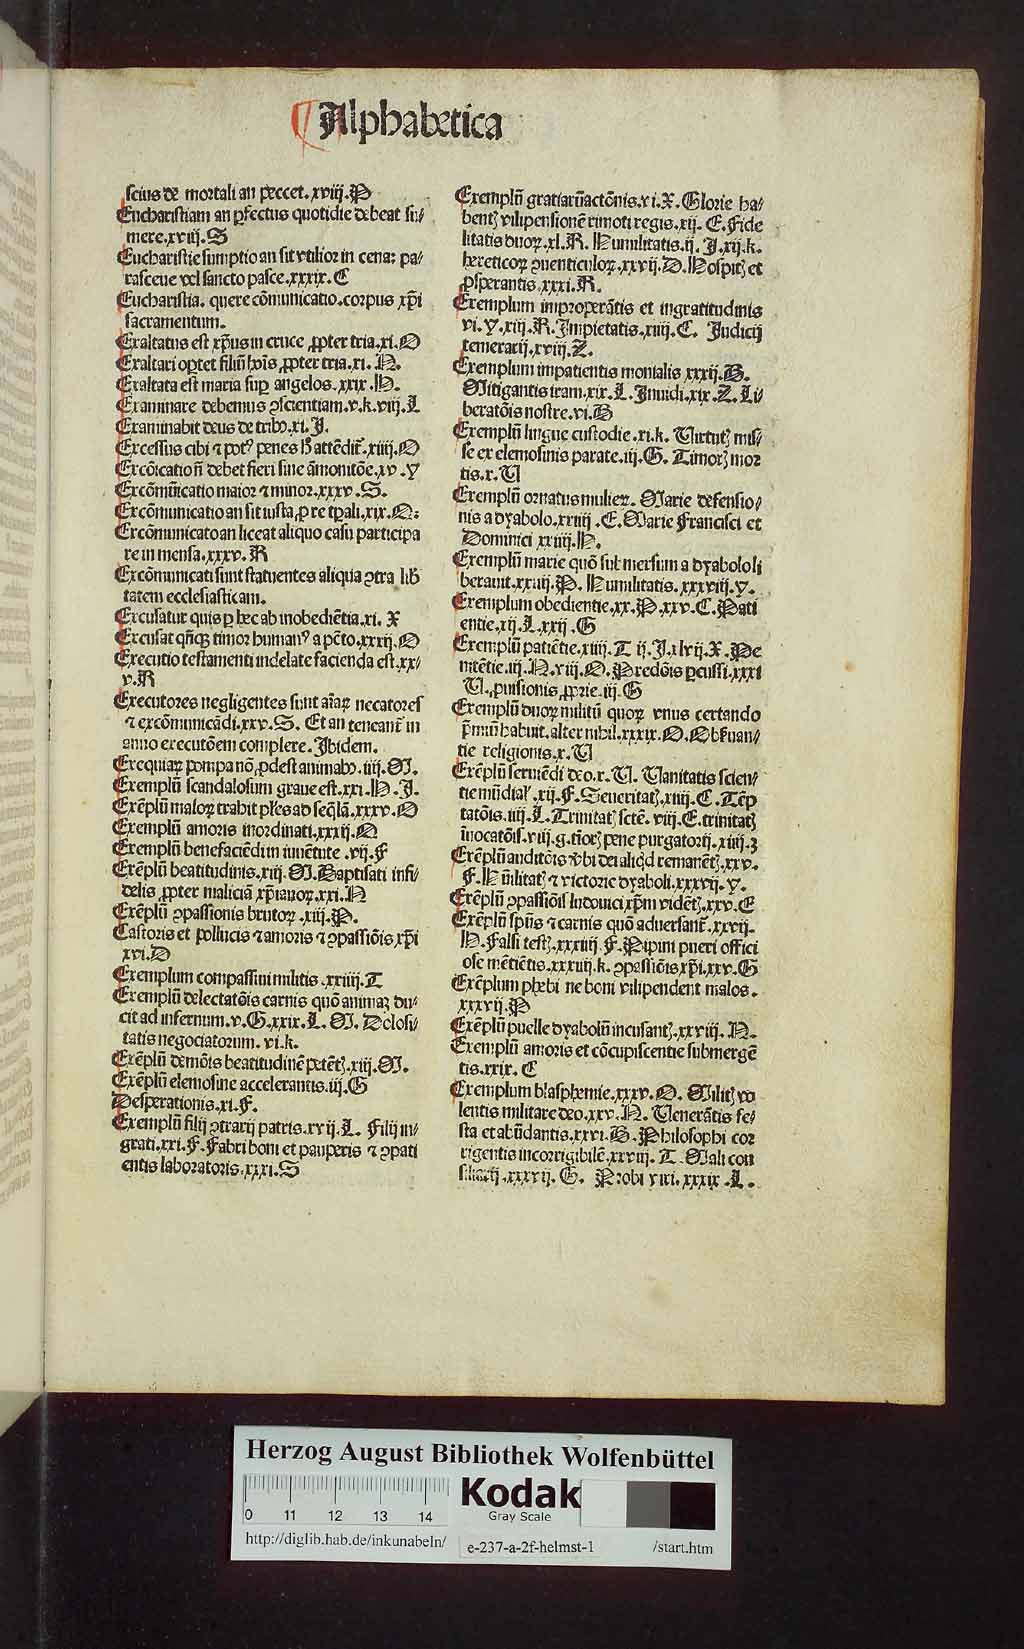 Alphabetica
scius de mortali an peccet.xviij.P
Eucharistiam an pfectus quotidie debeat su⸗
mere.xviij.S
Eucharistie sumptio an sit vtilior in cena: pa⸗
rasceue vel sancto pasce.xxxix.C
Eucharistia. quere cōmunicatio.corpus xp̄i
sacramentum.
Exaltatus est xp̄us in cruce ꝓpter tria.xi.O
Exaltari optet filiū hoīs ꝓpter tria.xi.N.
Exaltata est maria sup angelos.xxix.N.
Examinare debemus ꝯscientiam.v.k.viij.L
Examinabit deus de tribꝰ.xi.J.
Excessus cibi ⁊ potꝰ penes attēdit̄.xiiij.O
Excōicatio nō debet fieri sine āmonitōe.xv.Y
Excōmūicatio maior ⁊ minor.xxxv.S.
Excōmunicatio an sit iusta ꝓ re tp̄ali.xix.Q:
Excōmunicato an liceat aliquo casu participa
re in mensa.xxxv.R
Excōmunicati sunt statuentes aliqua ꝯtra lib̄
tatem ecclesiasticam.
Excusatur quis ꝑ hec ab inobediētia.xi.X
Excusat qn̄qꝫ timor humanꝰ a pctō.xxxij.O
Executio testamenti indelate facienda est.xx⸗
v.R
Executores negligentes sunt aīaꝝ necatores
⁊ excōmunicādi.xxv.S. Et an teneant̄ in
anno executōem complere. Ibidem.
Exequiaꝝ pompa nō ꝓdest animabꝰ.iiij.M.
Exemplū scandalosum graue est.xxi.H.J.
Exēplū maloꝝ trahit ples ad seqlā.xxxv.O
Exemplū amoris inordinati.xxxij.Q
Exemplū benefaciēdi in iuuētute.vij.F
Exēplū beatitudinis.xiij.M. Baptisati infi⸗
delis ꝓpter maliciā xp̄ianoꝝ.xxi.N
Exēplū ꝯpassionis brutoꝝ.xiij.P.
Castoris et pollucis ⁊ amoris ⁊ ꝯpassiōis xp̄i
xvi.D
Exemplum compassiui militis.xxiiij.T
Exemplū delectatōis carnis quō animaꝫ du⸗
cit ad infernum.v.G.xxix.L.M. Dolosi⸗
tatis negociatorum.vi.k.
Exēplū demōis beatitudinē petētꝭ.xiij.M.
Exēplū elemosine accelerantis.iij.G
Desperationis.xi.F.
Exemplū filij ꝯtrarij patris.xvij.L. Filij in⸗
grati.xxi.F. Fabri boni et pauperis ⁊ ꝯpati
entis laboratoris.xxxi.S
Exemplū gratiarūactōnis.xi.X. Glorie ha⸗
bentꝭ vilipensionē rimoti regis.xij.E. Fide
litatis duoꝝ.xl.R. Humilitatis.ij.J.xij.k.
hereticoꝝ ꝯuenticuloꝝ.xxvij.D. Hospitꝭ et
ꝓsperantis.xxxi.R.
Exemplum improperātis et ingratitudinis
vi.Y.xiij.R. Impietatis.xiiij.C. Judicij
temerarij.xviij.Z.
Exemplum impatientis monialis xxxij.B.
Mitigantis iram.xix.L. Inuidi.xix.Z. Li⸗
beratōis nostre.vi.B
Exemplū lingue custodie.xi.k. Virtutꝭ mis⸗
se ex elemosinis parate.iij.G. Timorꝭ mor
tis.x.V
Exemplū ornatus mulieꝝ. Marie defensio⸗
nis a dyabolo.xxiiij.E. Marie Francisci et
Dominici xxiiij.N.
Exemplū marie quō submersum a dyabolo li
berauit.xxiiij.P. Humilitatis.xxxviij.Y.
Exemplum obedientie.xx.P.xxv.C. Pati
entie.xij.L.xxij.G
Exemplū patiētie.xiiij.T ij.J.xlvij.X. Pe
nitētie.iij.N.viij.O. Predōis ꝑcussi.xxxi
V. puisionis ꝓprie.iij.G
Exemplū duoꝝ militū quoꝝ vnus certando
p̄miū habuit. alter nihil.xxxix.O. Obseruan⸗
tie religionis.x.V
Exēplū seruiēdi deo.x.V. Vanitatis scien⸗
tie mūdial.xij.F. Seueritatꝭ.xiiij.C. Tēp
tatōis.iiij.L. Trinitatꝭ scte.viij.E. trinitatꝭ
īuocatōis.viij.g. pene purgatorij.xiiij.ꝫ
Exēplū auditōis vbi dei remanētꝭ.xxv.
F. Hūilitatꝭ ⁊ victorie dyaboli.xxxvij.Y.
Exēplū ꝯpassiōis ludouici xp̄m vidētꝭ.xxv.E
Exēplū spūs ⁊ carnis quō aduersant̄.xxvij.
H. Falsi testꝭ.xxxiiij.F. Pipini pueri offici
ose mētiētis.xxxiiij.k. ꝯpassiōis xp̄i.xxv.G
Exēplum phebi ne boni vilipendent malos.
xxxvij.P
Exēplū puelle dyabolū incusantꝭ.xxviij.N.
Exemplū amoris et cōcupiscentie submergē
tis.xxix.C
Exemplum blasphemie.xxxv.O. Militꝭ vo
lentis militare deo.xxv.N. Venerātis fe⸗
sta et abūdantis.xxvi.B. Philosophi cor
rigentis incorrigibilē.xxxvij.T. Mali con
siliarij.xxxvij.G. Probi viri.xxxix.L.
Herzog August Bibliothek Wolfenbüttel
0 11 12 13 14
Kodak
Gray Scale
http://diglib.hab.de/inkunabeln/ e-237-a-2f-helmst-1 /start.htm